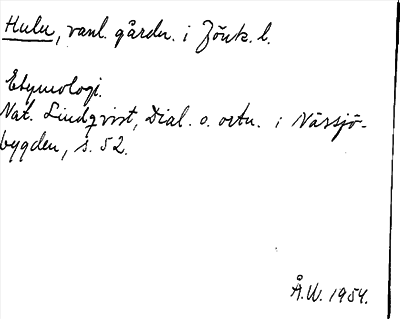 Hulu, vanl. gårdn. i Jönk. l.
Etymologi.
Nat. Lindqvist, Dial. o. ortn. i Nässjö-
bygden, s. 52.
Å.W. 1954.